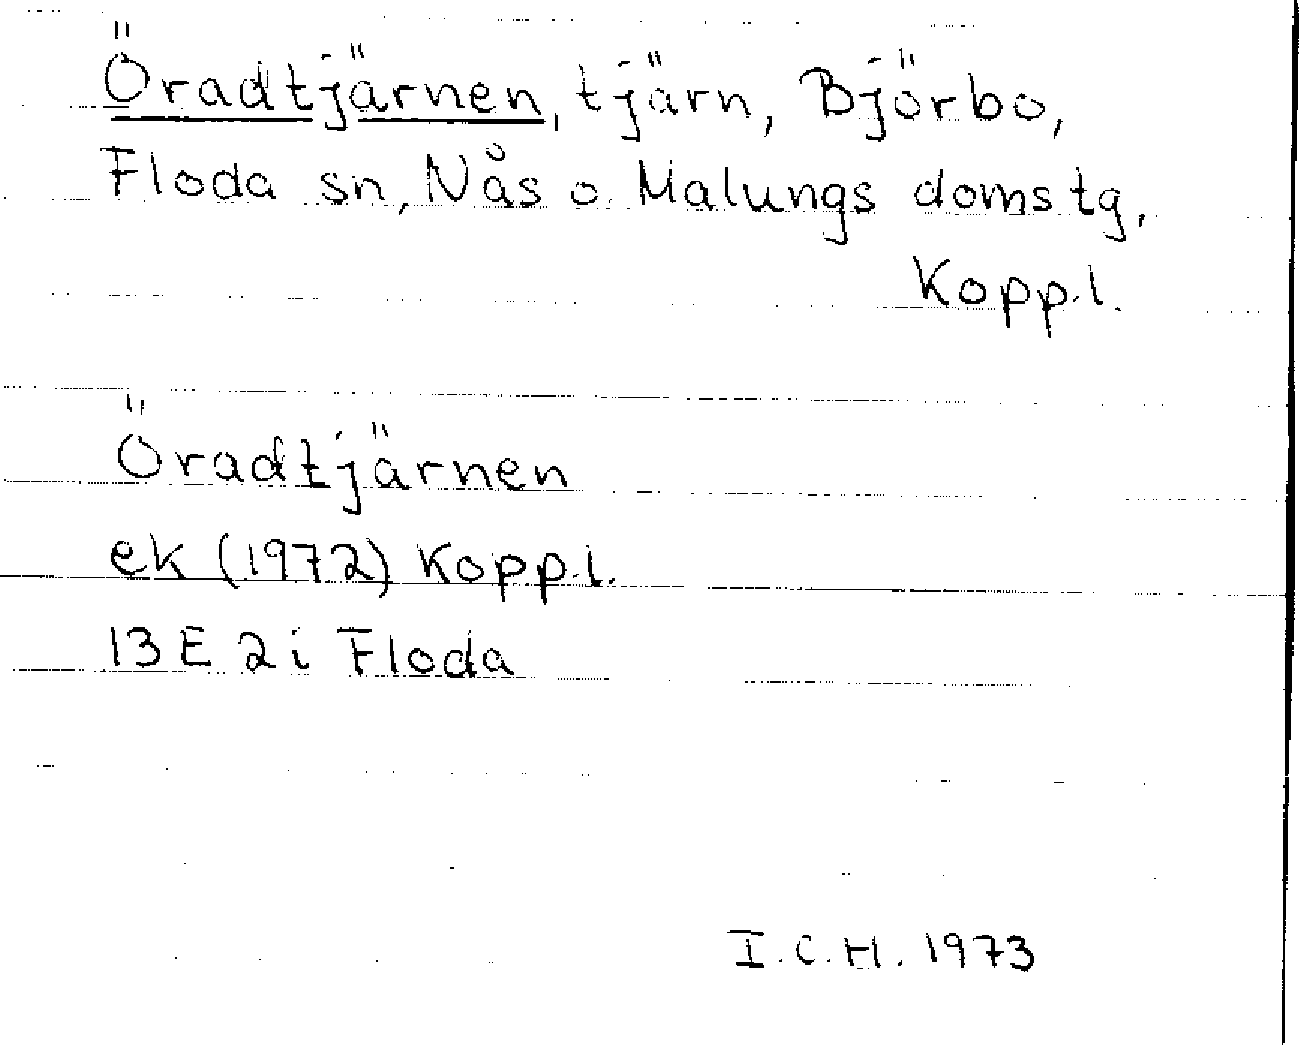 Öradtjärnen, tjärn, Björbo,
Floda sn, Nås o. Malungs domstg,
Kopp.l.
Öradtjärnen
ek (1972) Kopp.l.
13 E 2 i Floda
I.C.H. 1973